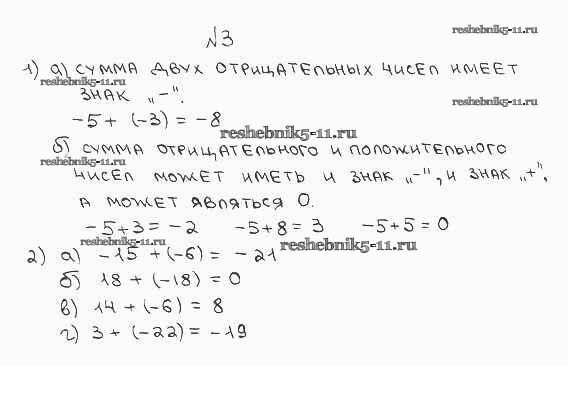 №3
reshebnik5-11.ru
1) а) сумма двух отрицательных чисел имеет
reshebnik5-11.ru
знак „-".
reshebnik5-11.ru
-5 + (-3) = -8
reshebnik5-11.ru
б) сумма отрицательного и положительного
reshebnik5-11.ru
чисел может иметь и знак „-", и знак „+",
а может являться 0.
-5+3 = -2 -5+8 = 3 -5+5 = 0
reshebnik5-11.ru
reshebnik5-11.ru
2) а) -15 + (-6) = -21
б) 18 + (-18) = 0
в) 14 + (-6) = 8
г) 3 + (-22) = -19